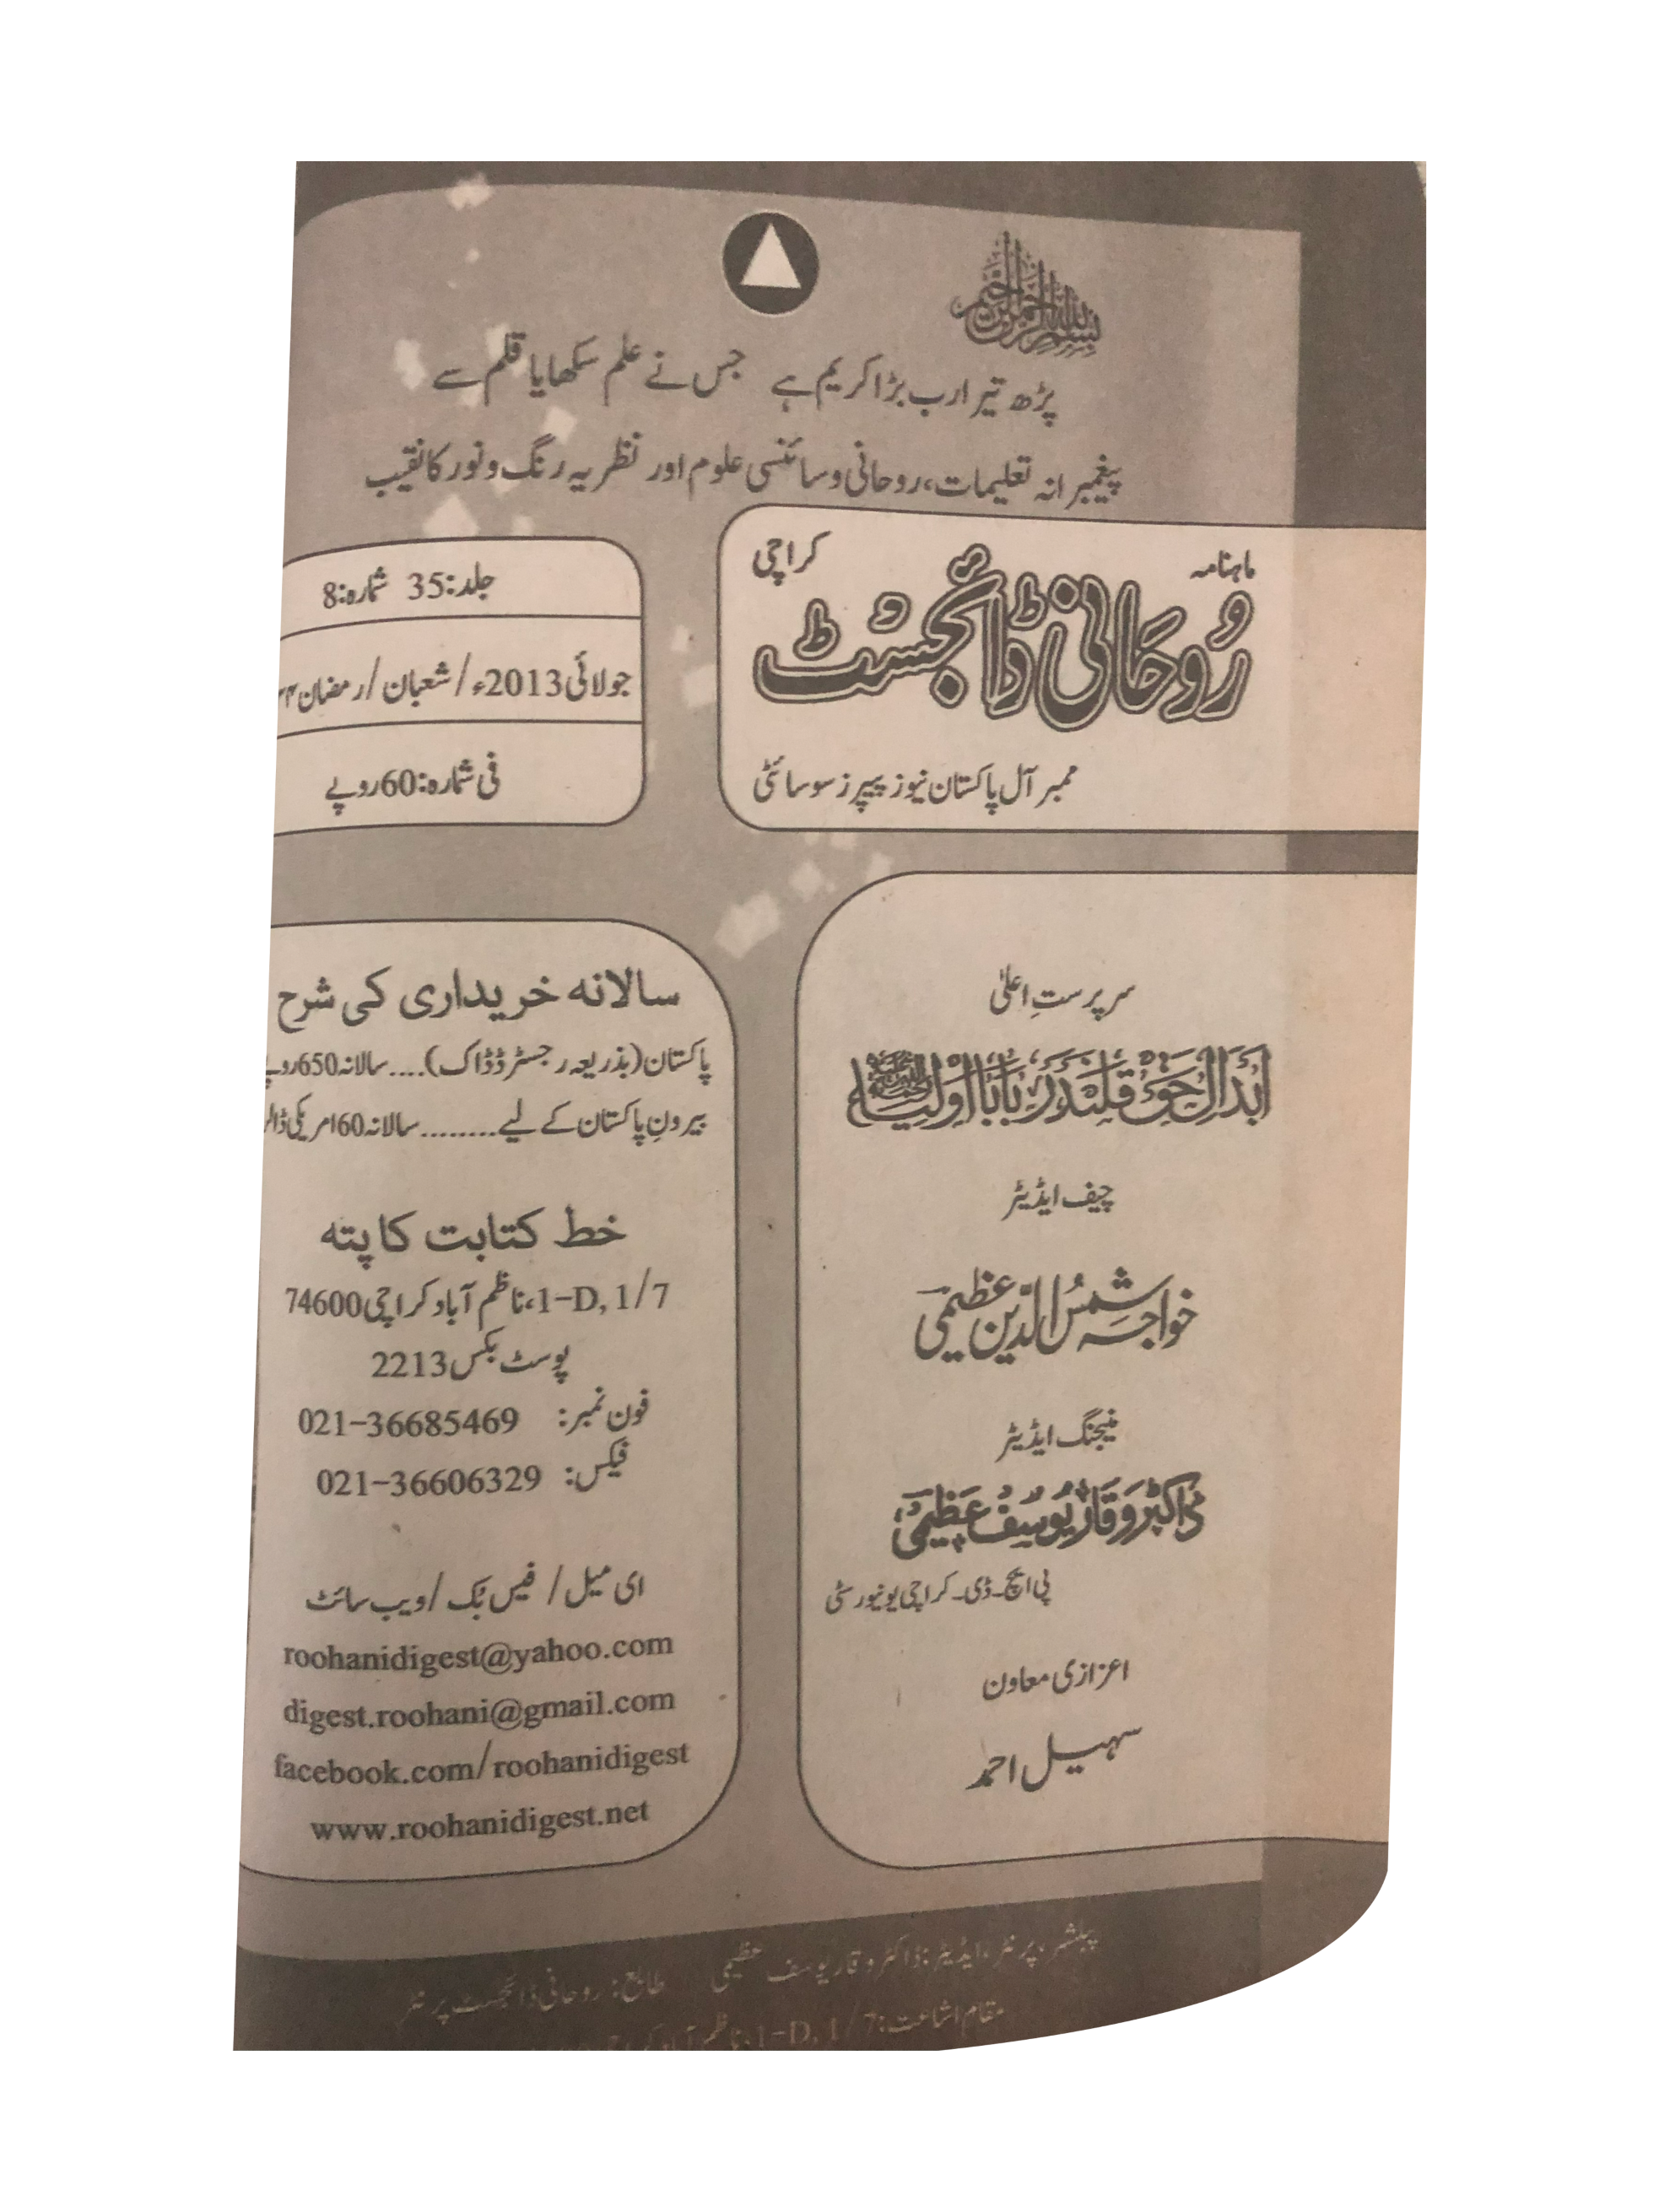 بسم اللہ الرحمن الرحیم
پڑھ تیرا رب بڑا کریم ہے جس نے علم سکھایا قلم سے
پیغمبرانہ تعلیمات، روحانی و سائنسی علوم اور نظریہ رنگ و نور کا نقیب
ماہنامہ کراچی
رُوحانی ڈائجسٹ
ممبر آل پاکستان نیوز پیپرز سوسائٹی
جلد:35 شمارہ:8
جولائی 2013ء/شعبان/رمضان
فی شمارہ:60روپے
سرپرستِ اعلیٰ
اَبدالِ حق قلندر بابا اولیاء
چیف ایڈیٹر
خواجہ شمس الدین عظیمی
منیجنگ ایڈیٹر
ڈاکٹر وقار یوسف عظیمی
پی ایچ۔ڈی۔ کراچی یونیورسٹی
اعزازی معاون
سہیل احمد
سالانہ خریداری کی شرح
پاکستان (بذریعہ رجسٹرڈ ڈاک)....سالانہ 650
بیرونِ پاکستان کے لیے........سالانہ 60 امریکی ڈالر
خط کتابت کا پتہ
1-D, 1/7،ناظم آباد کراچی 74600
پوسٹ بکس 2213
فون نمبر: 021-36685469
فیکس: 021-36606329
ای میل/ فیس بُک/ویب سائٹ
roohanidigest@yahoo.com
digest.roohani@gmail.com
facebook.com/roohanidigest
www.roohanidigest.net
پبلشر، پرنٹر، ایڈیٹر: ڈاکٹر وقار یوسف عظیمی طابع: روحانی ڈائجسٹ پرنٹر
مقام اشاعت: 1-D, 1/7، ناظم آباد